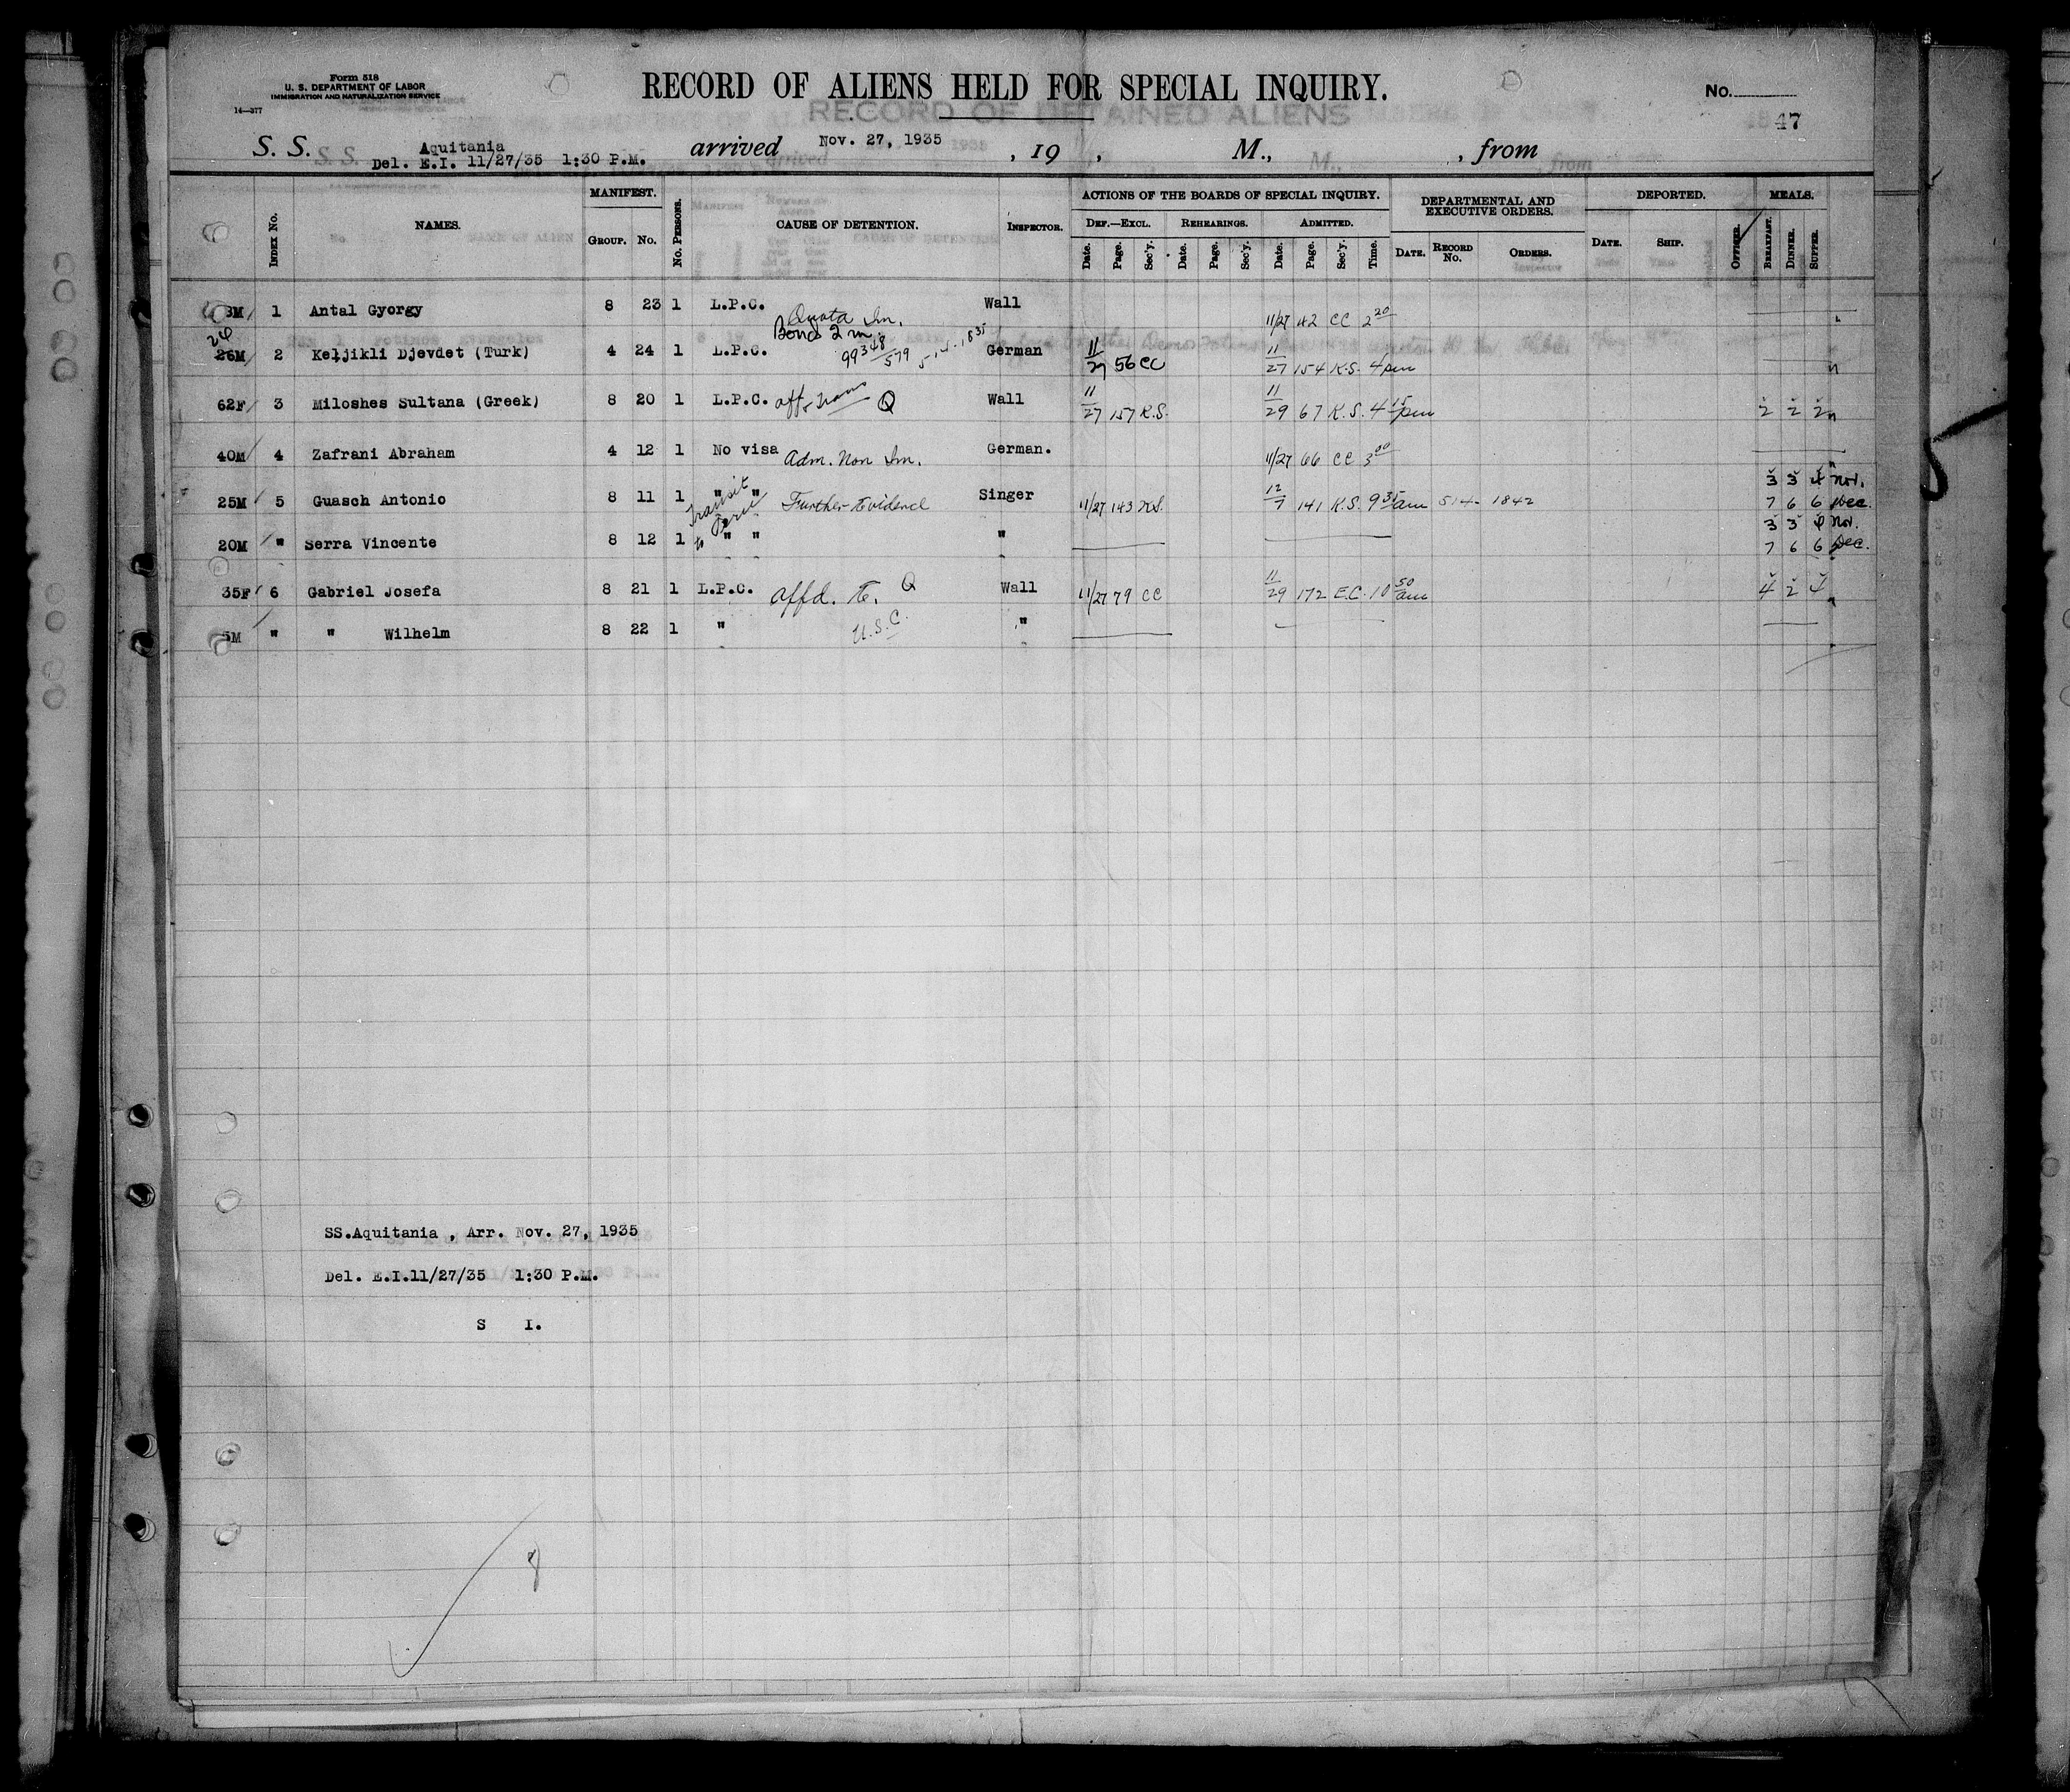 Form 518
U. S. DEPARTMENT OF LABOR
IMMIGRATION AND NATURALIZATION SERVICE
14—377
RECORD OF ALIENS HELD FOR SPECIAL INQUIRY.
RECORD OF DETAINED ALIENS
No.
47
S. S. Aquitania arrived Nov. 27, 1935 , 19 , M., , from
Del. E.I. 11/27/35 1:30 P.M.
INDEX No. NAMES. MANIFEST. GROUP. No. No. PERSONS. CAUSE OF DETENTION. INSPECTOR. ACTIONS OF THE BOARDS OF SPECIAL INQUIRY. DEF.—EXCL. Date. Page. Sec'y. REHEARINGS. Date. Page. Sec'y. ADMITTED. Date. Page. Sec'y. Time. DEPARTMENTAL AND EXECUTIVE ORDERS. DATE. RECORD No. ORDERS. DEPORTED. DATE. SHIP. OFFICER. MEALS. BREAKFAST. DINNER. SUPPER.
3M 1 Antal Gyorgy 8 23 1 L.P.C. Quota Im. Wall 11/27 42 CC 2 20
26
26M 2 Keljikli Djevdet (Turk) 4 24 1 L.P.C. Bond 2 m. 99348/579 German 11/27 56 CC 11/27 154 K.S. 4 pm
62F 3 Miloshes Sultana (Greek) 8 20 1 L.P.C. Q Wall 11/27 157 K.S. 11/29 67 K.S. 4 15 pm 2 2 2
40M 4 Zafrani Abraham 4 12 1 No visa Adm. Non Im. German. 11/27 66 CC 3 00
25M 5 Guasch Antonio 8 11 1 " " Transit to Peru Further Evidence Singer 11/27 143 K.S. 12/7 141 K.S. 9 35 am 514- 1842 3 3 4 Nov.
7 6 6 Dec.
20M " Serra Vincente 8 12 1 " " " 3 3 4 Nov.
7 6 6 Dec.
35F 6 Gabriel Josefa 8 21 1 L.P.C. affd. Q Wall 11/27 79 CC 11/29 172 E.C. 10 50 am 4 2 4
5M " " Wilhelm 8 22 1 " U.S.C. "
SS.Aquitania , Arr. Nov. 27, 1935
Del. E.I.11/27/35 1:30 P.M.
S I.
8